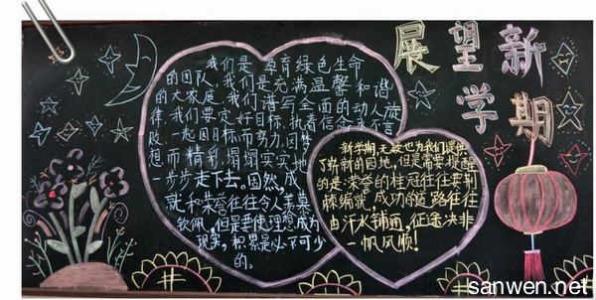 展望新
学期
我们是孕育绿色生命
的团队，我们是充满温馨和谐
的大家庭，我们谱写全面的动人旋
律，我们要定好目标，执着信念永不言
败，一起因目标而努力，因梦
想而精彩，塌塌实实地
一步步走下去。固然，成
就和荣誉往往令人羡慕
钦佩，但是要使理想成为
现实，积累是必不可少
的。
新学期无疑也为我们提供
了新新的目地，但是需要提醒
的是：荣誉的桂冠往往荆
棘编就，成功的道路往往
由汗水铺洒，征途决非
一帆风顺！
sanwen.net